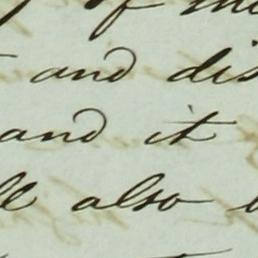 of
and dis
and it
ll also